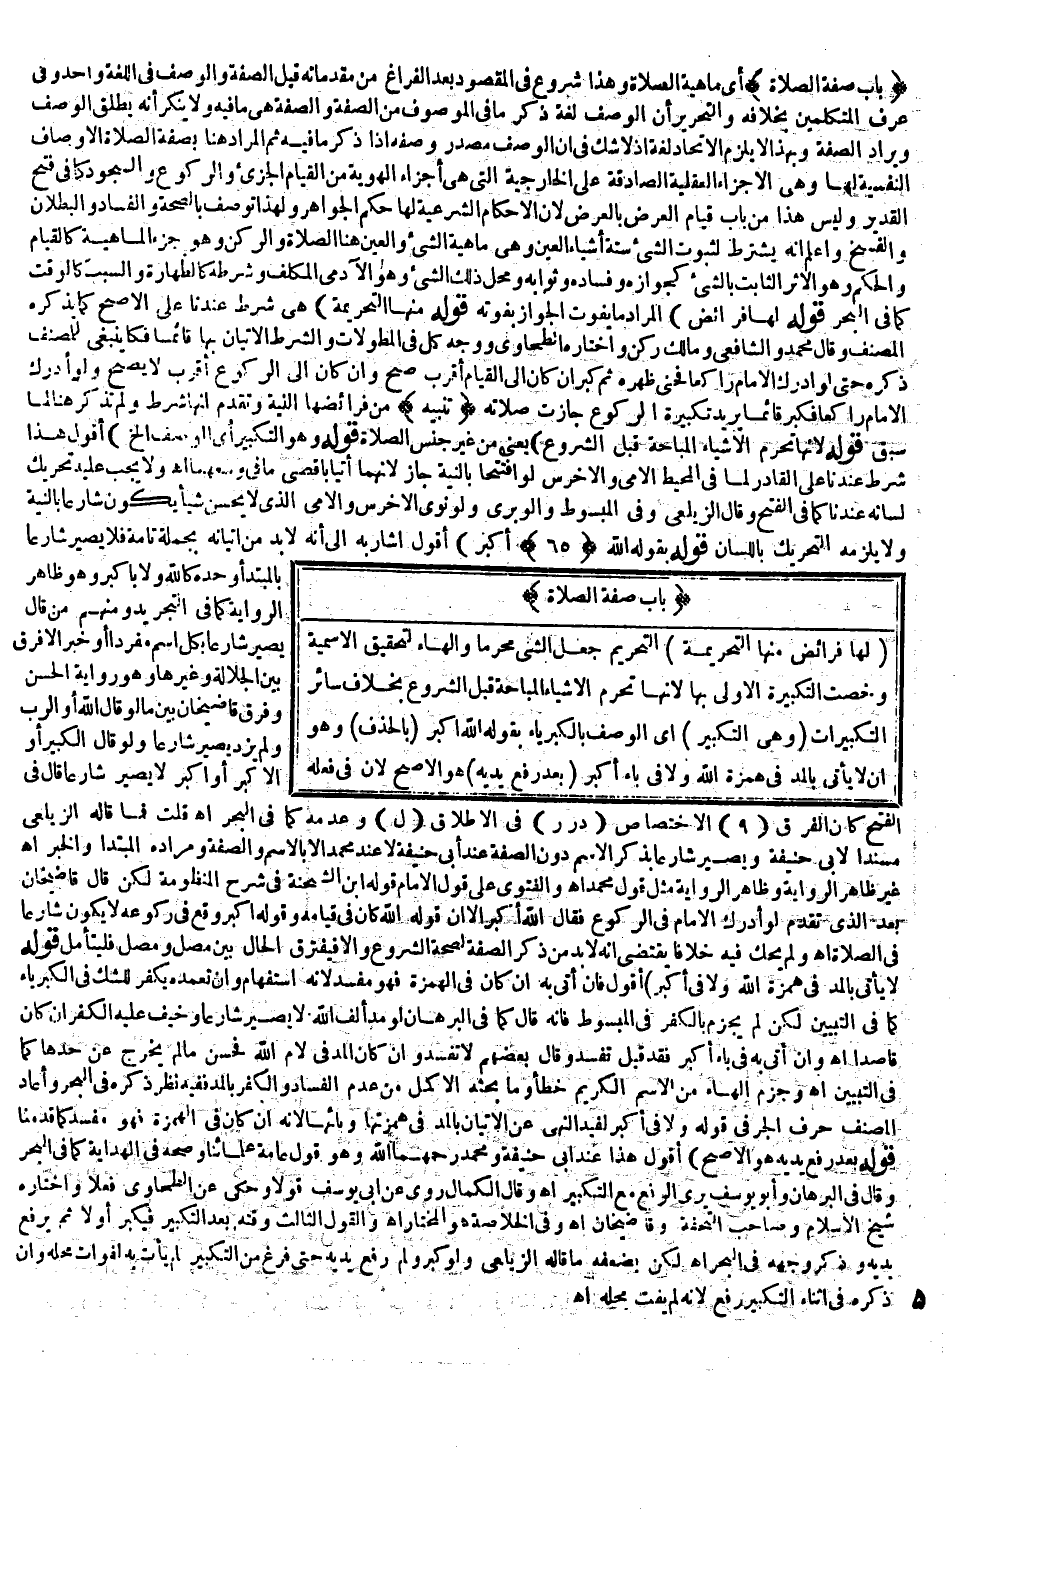 ﴿ باب صفة الصلاة ﴾ أى ماهية الصلاة وهذا شروع فى المقصود بعد الفراغ من مقدماته قيل الصفة والوصف فى اللغة واحد وفى
عرف المتكلمين بخلافه والتحرير أن الوصف لغة ذكر مافى الموصوف من الصفة والصفة هى مافيه ولا ينكر أنه يطلق الوصف
ويراد الصفة وبهذا لا يلزم الاتحاد لغة اذ لاشك فى ان الوصف مصدر وصفه اذا ذكر مافيه ثم المراد هنا بصفة الصلاة الاوصاف
النفسية لها وهى الاجزاء العقلية الصادقة على الخارجية التى هى أجزاء الهوية من القيام الجزئى والركوع والسجود كما فى فتح
القدير وليس هذا من باب قيام العرض بالعرض لان الاحكام الشرعية لها حكم الجواهر ولهذا توصف بالصحة والفساد والبطلان
والفسخ واعلم انه يشترط لثبوت الشئ ستة أشياء العين وهى ماهية الشئ والعين هنا الصلاة والركن وهو جزء الماهية كالقيام
والحكم وهو الاثر الثابت بالشئ كجوازه وفساده وثوابه ومحل ذلك الشئ وهو الآدمى المكلف وشرطه كالطهارة والسبب كالوقت
كما فى البحر قوله لها فرائض ) المراد ما يفوت الجواز بفوته قوله منها التحريمة ) هى شرط عندنا على الاصح كما يذكره
المصنف وقال محمد والشافعى ومالك ركن واختاره الطحاوى ووجه كل فى المطولات والشرط الاتيان بها قائما فكان ينبغى للمصنف
ذكره حتى لو ادرك الامام راكعا فحنى ظهره ثم كبر ان كان الى القيام أقرب صح وان كان الى الركوع أقرب لا يصح ولو أدرك
الامام راكعا فكبر قائما يريد تكبيرة الركوع جازت صلاته ﴿ تنبيه ﴾ من فرائضها النية وتقدم انها شرط ولم تذكر هنا لما
سبق قوله لانها تحرم الاشياء المباحة قبل الشروع ) يعنى من غير جنس الصلاة قوله وهو التكبير أى الوصف الخ ) أقول هذا
شرط عندنا على القادر لما فى المحيط الامى والاخرس لو افتتحا بالنية جاز لانهما أتيا باقصى مافى وسعهما اه ولا يجب عليه تحريك
لسانه عندنا كما فى الفتح وقال الزيلعى وفى المبسوط والوبرى ولو نوى الاخرس والامى الذى لا يحسن شيأ يكون شارعا بالنية
ولا يلزمه التحريك باللسان قوله بقوله الله ﴿ ٦٥ ﴾ أكبر ) أقول اشار به الى أنه لابد من اتيانه بجملة تامة فلا يصير شارعا
بالمبتدأ وحده كالله ولا باكبر وهو ظاهر
الرواية كما فى التجريد ومنهم من قال
يصير شارعا بكل اسم مفردا أو خبر الافرق
بين الجلالة وغيرها وهو رواية الحسن
وفرق قاضيخان بين مالو قال الله أو الرب
ولم يزد يصير شارعا ولو قال الكبير أو
الاكبر أو اكبر لا يصير شارعا قال فى
﴿ باب صفة الصلاة ﴾
( لها فرائض منها التحريمة ) التحريم جعل الشئ محرما والهاء لتحقيق الاسمية
وخصت التكبيرة الاولى بها لانها تحرم الاشياء المباحة قبل الشروع بخلاف سائر
التكبيرات (وهى التكبير ) اى الوصف بالكبرياء بقوله الله اكبر (بالحذف) وهو
ان لا يأتى بالمد فى همزة الله ولا فى باء أكبر (بعد رفع يديه) هو الاصح لان فى فعله
الفتح كان الفرق ( ٩ ) الاختصاص ( درر ) فى الاطلاق ( ل ) وعدمه كما فى البحر اه قلت فما قاله الزيلعى
مسندا لابى حنيفة ويصير شارعا بذكر الاسم دون الصفة عند أبى حنيفة لا عند محمد الا بالاسم والصفة ومراده المبتدا والخبر اه
غير ظاهر الرواية وظاهر الرواية مثل قول محمد اه والفتوى على قول الامام قوله ابن الشحنة فى شرح المنظومة لكن قال قاضيخان
بعد الذى تقدم لو أدرك الامام فى الركوع فقال الله أكبر الا ان قوله الله كان فى قيامه وقوله اكبر وقع فى ركوعه لا يكون شارعا
فى الصلاة اه ولم يحك فيه خلافا يقتضى انه لابد من ذكر الصفة لصحة الشروع والا فيفترق الحال بين مصل ومصل فليتأمل قوله
لا يأتى بالمد فى همزة الله ولا فى أكبر ) أقول فان أتى به ان كان فى الهمزة فهو مفسد لانه استفهام وان تعمده يكفر للشك فى الكبرياء
كما فى التبيين لكن لم يجزم بالكفر فى المبسوط فانه قال كما فى البرهان لو مد ألف الله لا يصير شارعا وخيف عليه الكفر ان كان
قاصدا اه وان أتى به فى باء أكبر فقد قيل تفسد وقال بعضهم لا تفسد و ان كان المد فى لام الله فحسن مالم يخرج عن حدها كما
فى التبيين اه وجزم الهاء من الاسم الكريم خطأ وما بحثه الاكمل من عدم الفساد والكفر بالمد ففيه نظر ذكره فى البحر وأعاد
المصنف حرف الجر فى قوله ولا فى أكبر لفيد النهى عن الاتيان بالمد فى همزتها وبائها لانه ان كان فى الهمزة فهو مفسد كما قدمنا
قوله بعد رفع يديه هو الاصح ) أقول هذا عند ابى حنيفة ومحمد رحمهما الله وهو قول عامة علمائنا وصححه فى الهداية كما فى البحر
وقال فى البرهان وأبو يوسف يرى الرفع مع التكبير اه وقال الكمال روى عن ابى يوسف قولا وحكى عن الطحاوى فعلا واختاره
شيخ الاسلام وصاحب التحفة وقاضيخان اه وفى الخلاصة هو المختار اه والقول الثالث وقته بعد التكبير فيكبر أولا ثم يرفع
يديه وذكر وجهه فى البحر اه لكن يضعفه ما قاله الزيلعى ولو كبر ولم رفع يديه حتى فرغ من التكبير لم يأت به لفوات محله وان
ذكره فى اثناء التكبير رفع لانه لم يفت محله اه
۵